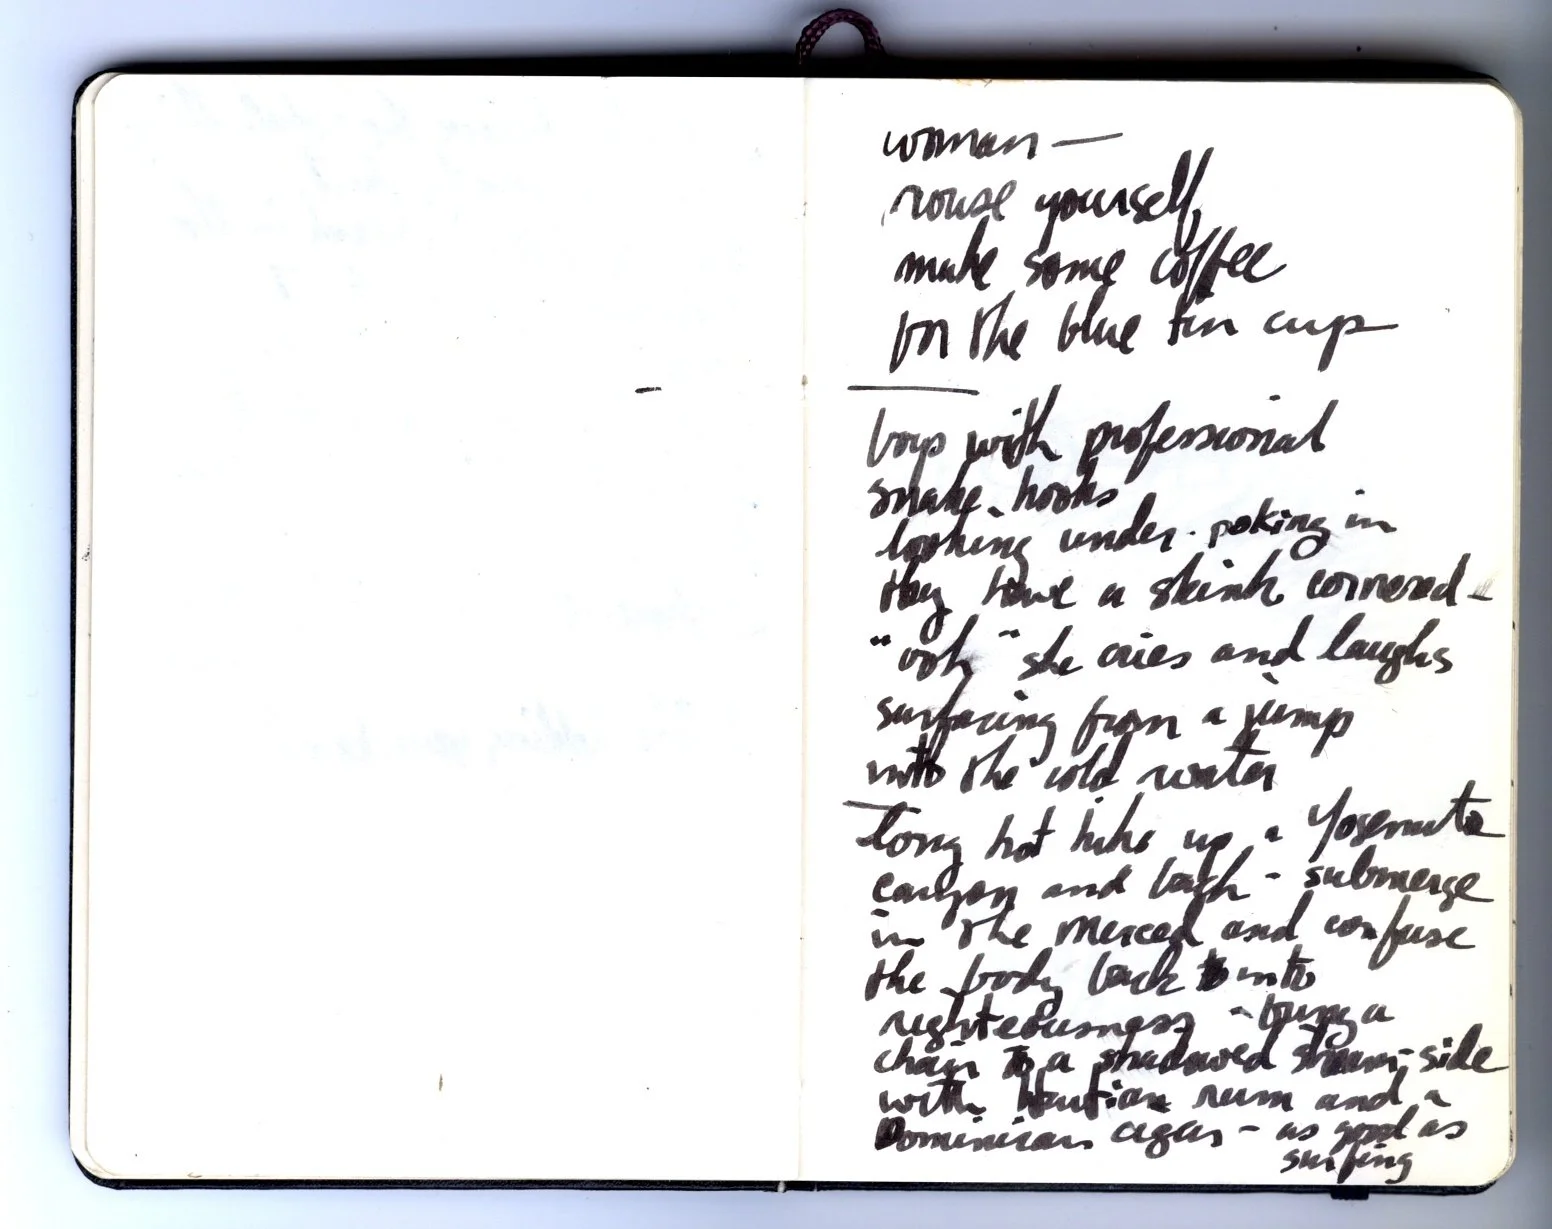 woman —
rouse yourself,
make some coffee
for the blue tin cup
boys with professional
snake hooks
looking under - poking in
they have a skink cornered -
"ooh" she cries and laughs
surfacing from a jump
into the cold water
long hot hike up a Yosemite
canyon and back - submerge
in the Merced and confuse
the body back into
righteousness - bring a
chair to a shadowed stream-side
with Haitian rum and a
Dominican cigar - as good as
surfing